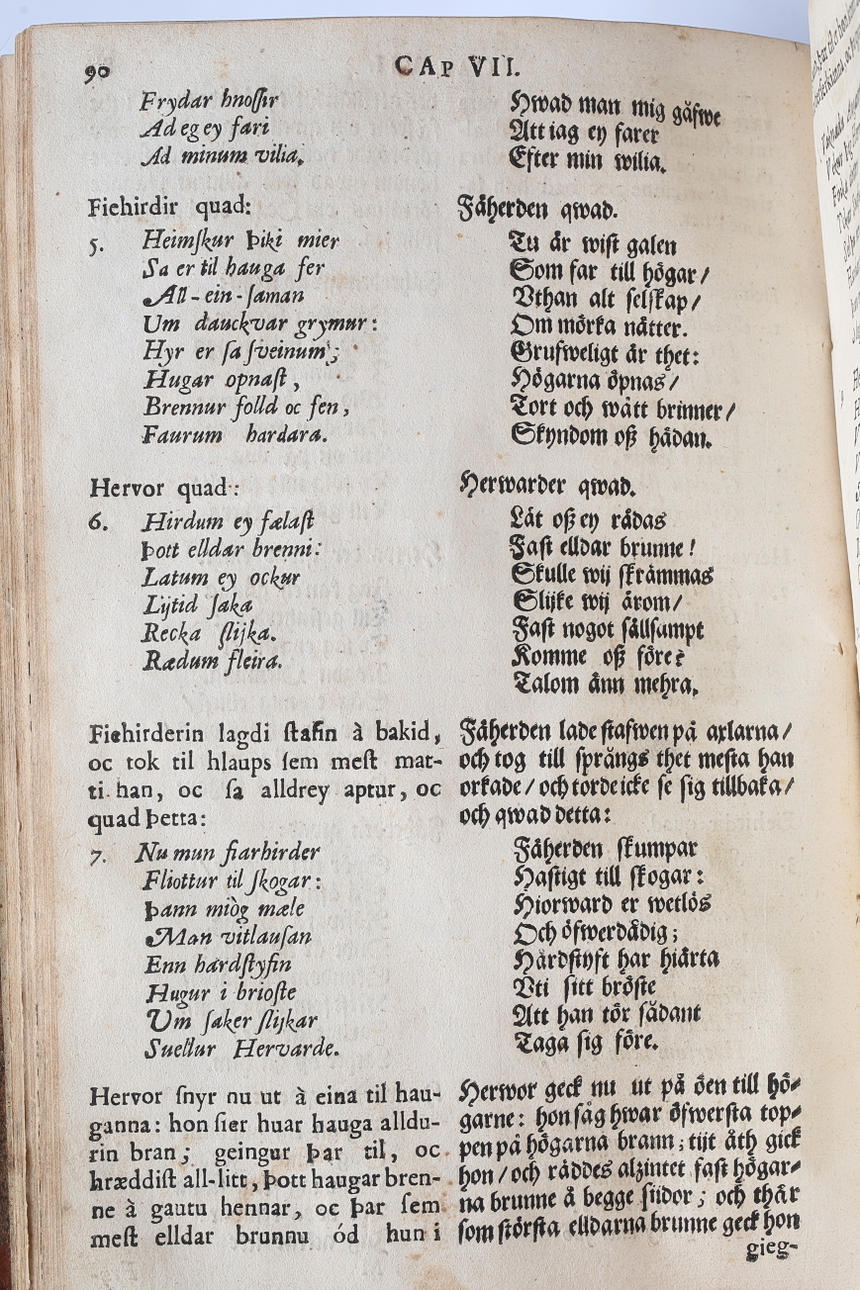 90
CAP VII.
Frydar hnoſſir
Ad eg ey fari
Ad minum vilia.
Fiehirdir quad:
5. Heimſkur Þiki mier
Sa er til hauga fer
All-ein-ſaman
Um dauckvar grymur:
Hyr er ſa ſveinum;
Hugar opnaſt,
Brennur folld oc fen,
Faurum hardara.
Hervor quad:
6. Hirdum ey fælaſt
Þott elldar brenni:
Latum ey ockur
Lijtid ſaka
Recka ſlijka.
Rædum fleira.
Fiehirderin lagdi ſtafin à bakid,
oc tok til hlaups ſem meſt mat-
ti han, oc ſa alldrey aptur, oc
quad Þetta:
7. Nu mun fiarhirder
Fliottur til ſkogar:
Þann miòg mæle
Man vitlauſan
Enn hardſtyfin
Hugur i brioſte
Um ſaker ſlijkar
Suellur Hervarde.
Hervor ſnyr nu ut à eina til hau-
ganna: hon ſier huar hauga alldu-
rin bran; geingur Þar til, oc
hræddiſt all-litt, Þott haugar bren-
ne à gautu hennar, oc Þar ſem
meſt elldar brunnu ód hun i
Hwad man mig gåfwe
Att iag ey farer
Efter min wilia.
Fåherden qwad.
Tu är wiſt galen
Som far till högar/
Vthan alt ſelſkap/
Om mörka nätter.
Grufweligt är thet:
Högarna öpnas/
Tort och wått brinner/
Skyndom oß hädan.
Herwarder qwad.
Låt oß ey rädas
Faſt elldar brunne!
Skulle wij ſkrämmas
Slijke wij ärom/
Faſt nogot ſällſampt
Komme oß före?
Talom änn mehra.
Fåherden lade ſtafwen på axlarna/
och tog till ſprångs thet meſta han
orkade/ och torde icke ſe ſig tillbaka/
och qwad detta:
Fåherden ſkumpar
Haſtigt till ſkogar:
Hiorward er wetlös
Och öfwerdådig;
Hårdſtyft har hiärta
Vti ſitt bröſte
Att han tör ſådant
Taga ſig före.
Herwor geck nu ut på öen till hö-
garne: hon ſåg hwar öfwerſta top-
pen på högarna brann; tijt åth gick
hon/ och räddes alzintet faſt högar-
na brunne å begge ſiidor; och thär
ſom ſtörſta elldarna brunne geck hon
gieg-